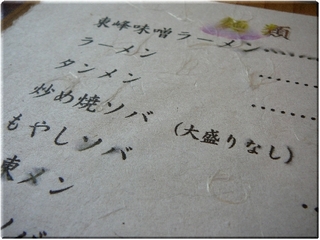 麺類
東峰味噌ラーメン……
ラーメン
タンメン……
炒め焼ソバ
もやしソバ(大盛りなし)
東メン
ソバ